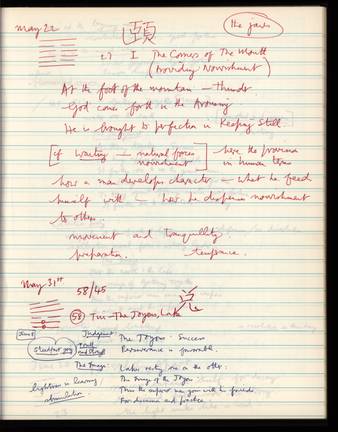 May 22
頤
the jaws
27 I The Corners of The Mouth
(Providing Nourishment)
At the foot of the mountain — thunder.
God comes forth in the Arousing
He is brought to perfection in Keeping Still.
if Waiting — natural forces nourishment
here the provision in human terms
how a man develops character — what he feeds
himself with — how he dispenses nourishment
to others.
movement and Tranquillity
preparation. temperance.
May 31st
58/45
兌
58 Tui — The Joyous, Lake
Judgement: The Joyous: Success
Perseverance is favorable.
Truth and Strength
The Image: Lakes resting one on the other:
The Image of the Joyous
Thus the superior man joins with his friends
For discussion and practice.
lightness in learning/
stimulation